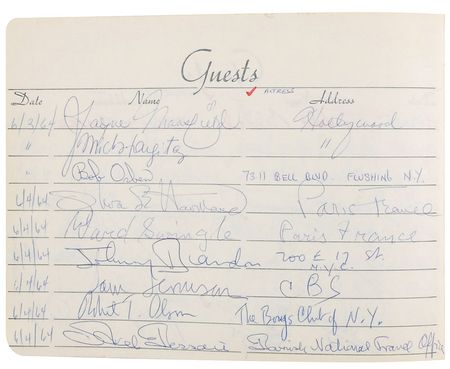 Guests
✓ ACTRESS
Date Name Address
6/3/64 Jayne Mansfield Hollywood
" Mick Hargitay "
" Bob Orben 73-11 BELL BLVD. FLUSHING N.Y.
6/4/64 Paris France
6/4/64 Ward Swingle Paris France
6/4/64 Johnny Brandon 200 E 17 St. N.Y.C.
6/4/64 CBS
6/4/64 Robert T. Olson The Boys Club of N.Y.
6/4/64 Danish National Travel Office